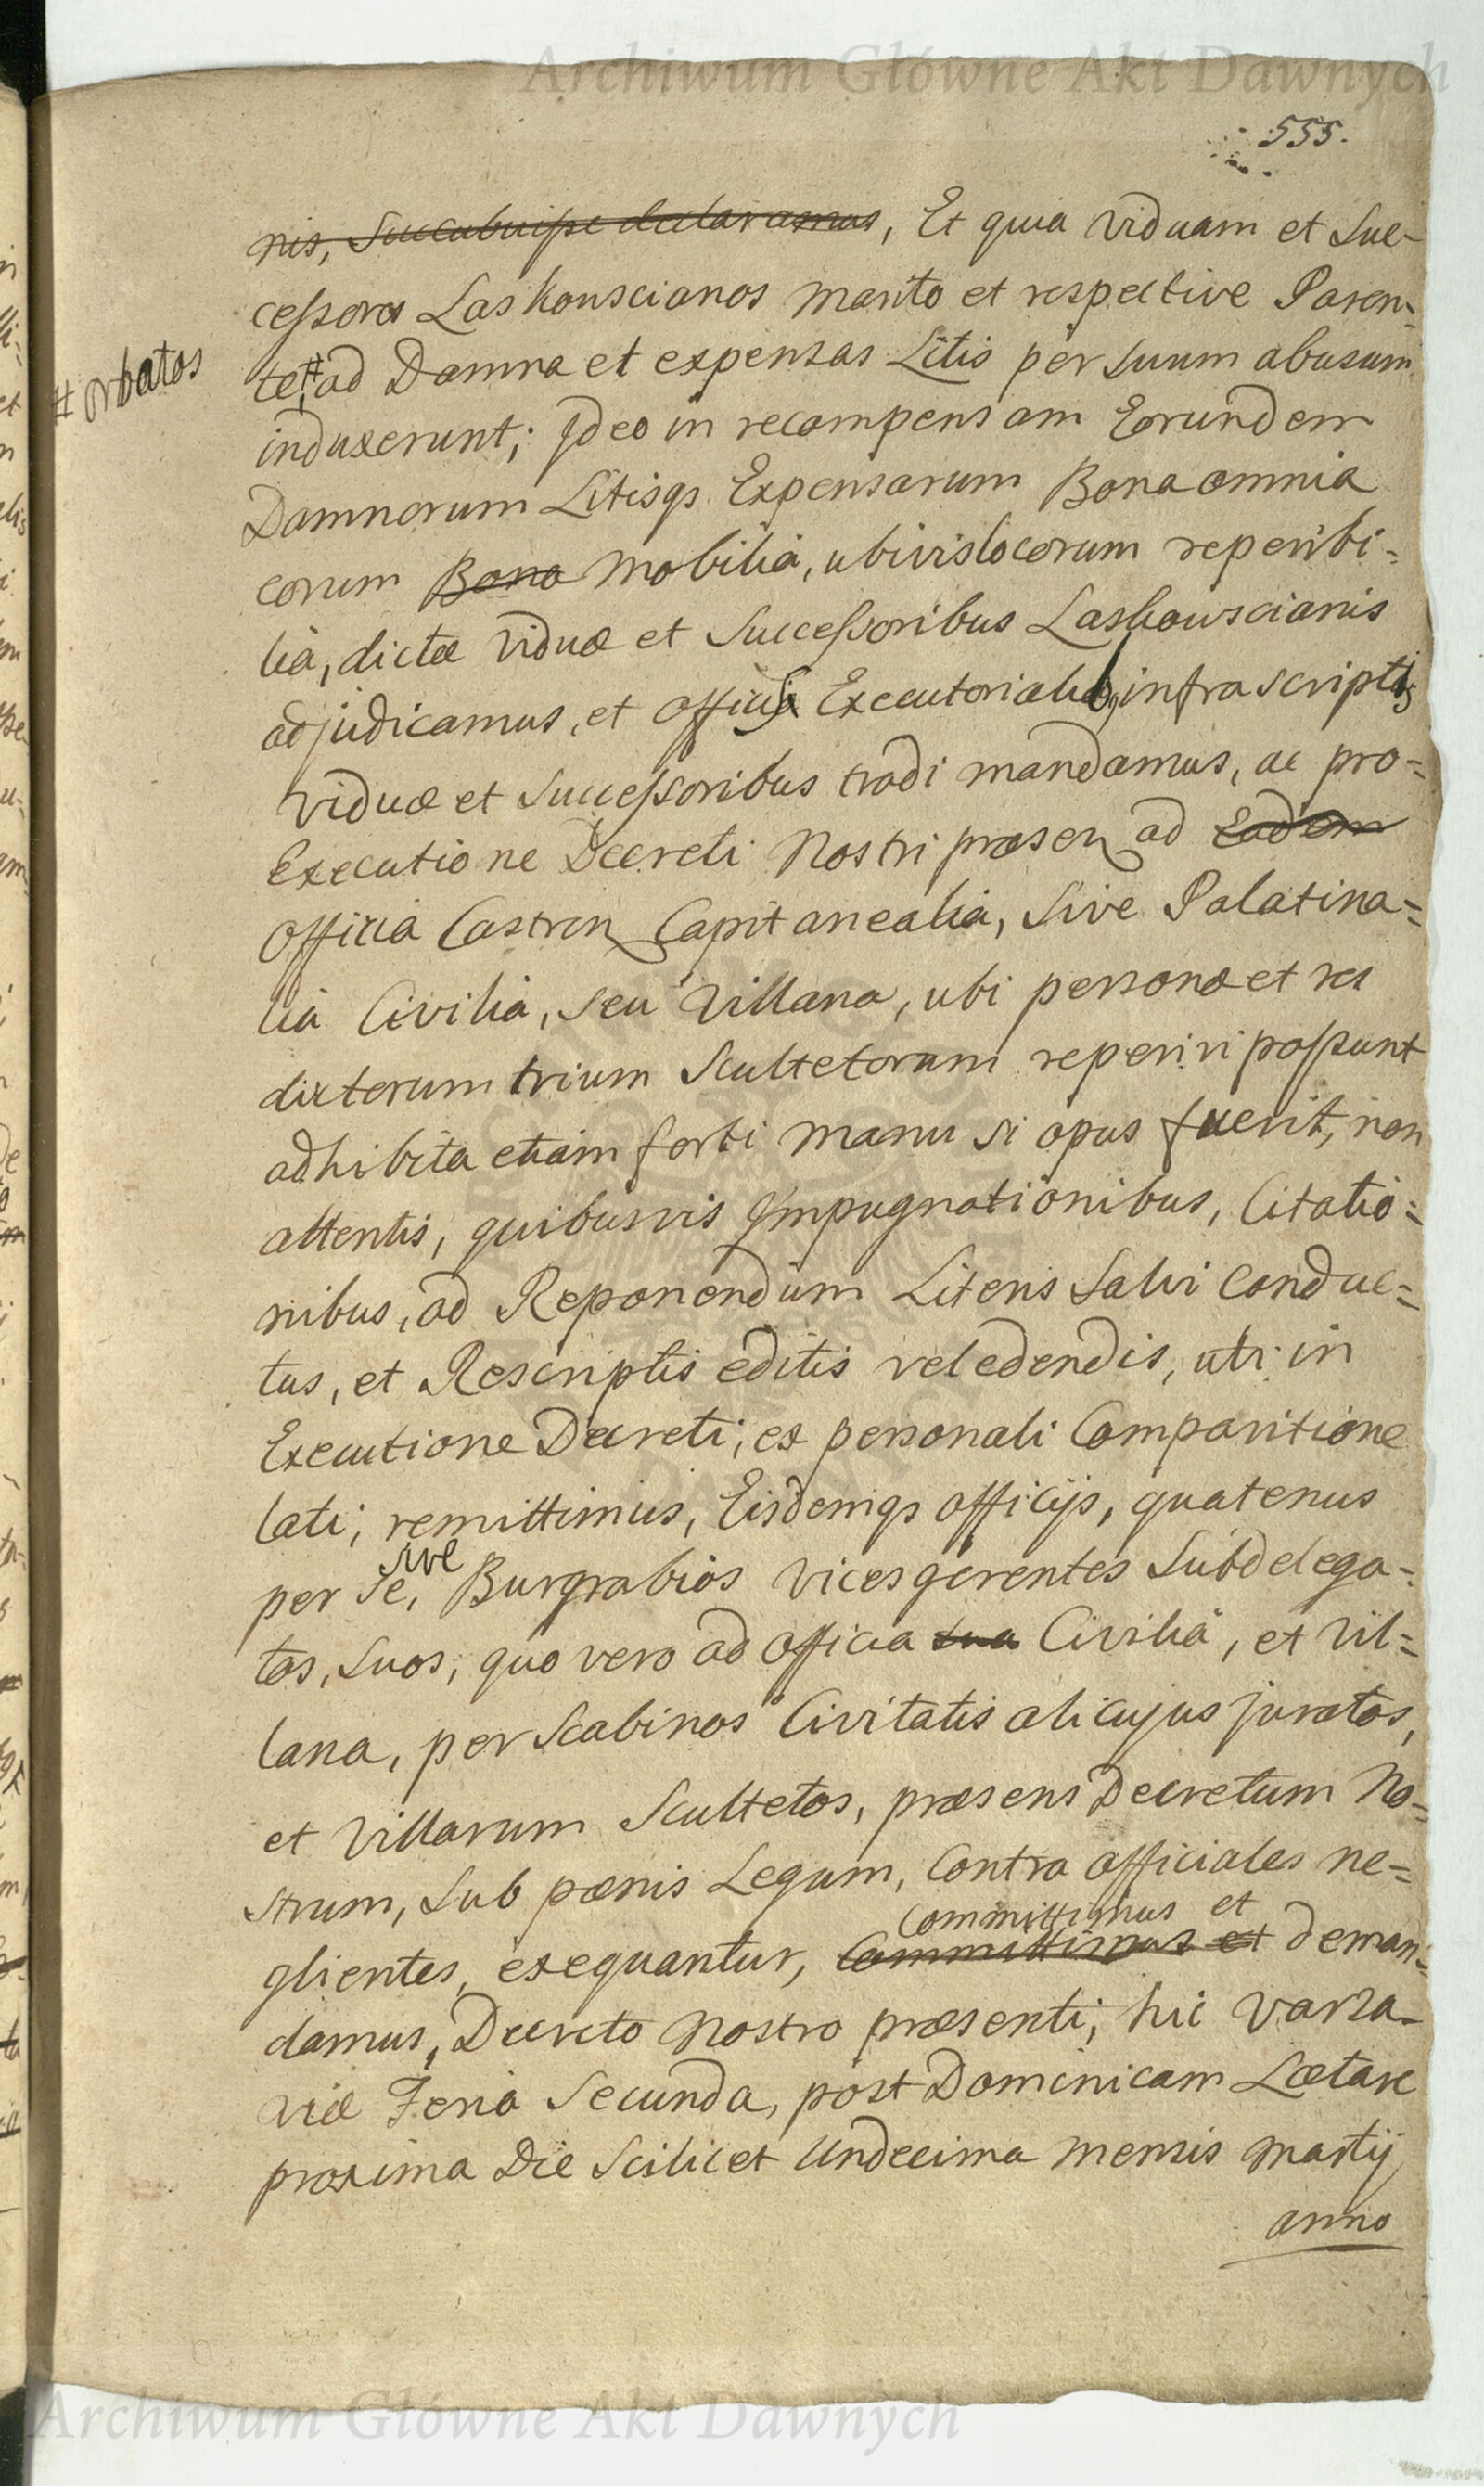 Archiwum Główne Akt Dawnych
555.
nis, Succubuisse declaramus, Et quia Viduam et Suc-
cessores Laskouscianos Marito et respective Paren-
te,# ad Damna et expensas Litis per suum abusum
# orbatos
induxerunt; Ideo in recampensam Eorundem
Damnorum Litisqs Expensarum Bona omnia
eorum Bona Mobilia, ubivislocorum reperibi-
lia, dictæ Viduæ et Successoribus Laskouscianis
adjudicamus, et officijs Executorialib, infrascriptis
Viduæ et Successoribus tradi mandamus, ac pro-
Executione Decreti Nostri præsen ad Eadem
Officia Castren Capitanealia, Sive Palatina-
lia Civilia, seu Villana, ubi personæ et res
dictorum trium Scultetorum reperiri possunt
adhibita etiam forti manu si opus fuerit, non
attentis, quibusvis Impugnationibus, Citatio-
nibus, ad Reponendum Literis Salvi Conduc-
tus, et Rescriptis editis vel edendis, uti in
Executione Decreti, ex personali Comparitione
lati, remittimus, Eisdemqs officijs, quatenus
per se, sive Burgrabios Vicesgerentes Subdelega-
tos, Suos, quo vero ad officia sua Civilia, et Vil-
lana, per Scabinos Civitatis alicujus juratos,
et Villarum Scultetos, præsens Decretum No-
strum, Sub pœnis Legum, Contra officiales ne-
committimus et
glientes, exequantur, Committimus et deman-
damus, Decreto Nostro præsenti, hic Varsa-
viæ Feria Secunda, post Dominicam Lætare
proxima Die Scilicet Undecima Mensis Martij
anno
Archiwum Główne Akt Dawnych